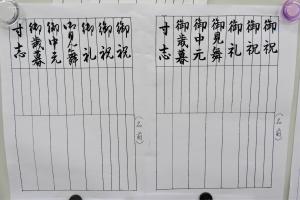 御祝
御祝
御礼
御見舞
御中元
御歳暮
寸志
(名前)
御祝
御祝
御礼
御見舞
御中元
御歳暮
寸志
(名前)